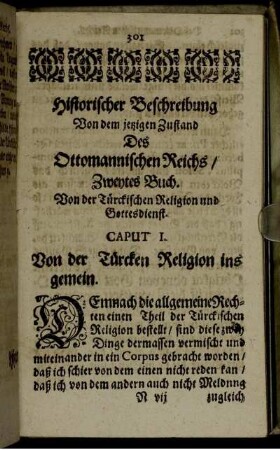 301
Historischer Beschreibung
Von dem jetzigen Zustand
Des
Ottomannischen Reichs /
Zweytes Buch.
Von der Türckischen Religion und
Gottesdienst.
CAPUT I.
Von der Türcken Religion ins
gemein.
DEmnach die allgemeine Rech-
ten einen Theil der Türckischen
Religion bestellt / sind diese zwey
Dinge dermassen vermischt und
miteinander in ein Corpus gebracht worden /
daß ich schier von dem einen nicht reden kan /
daß ich von dem andern auch nicht Meldung
N vij zugleich